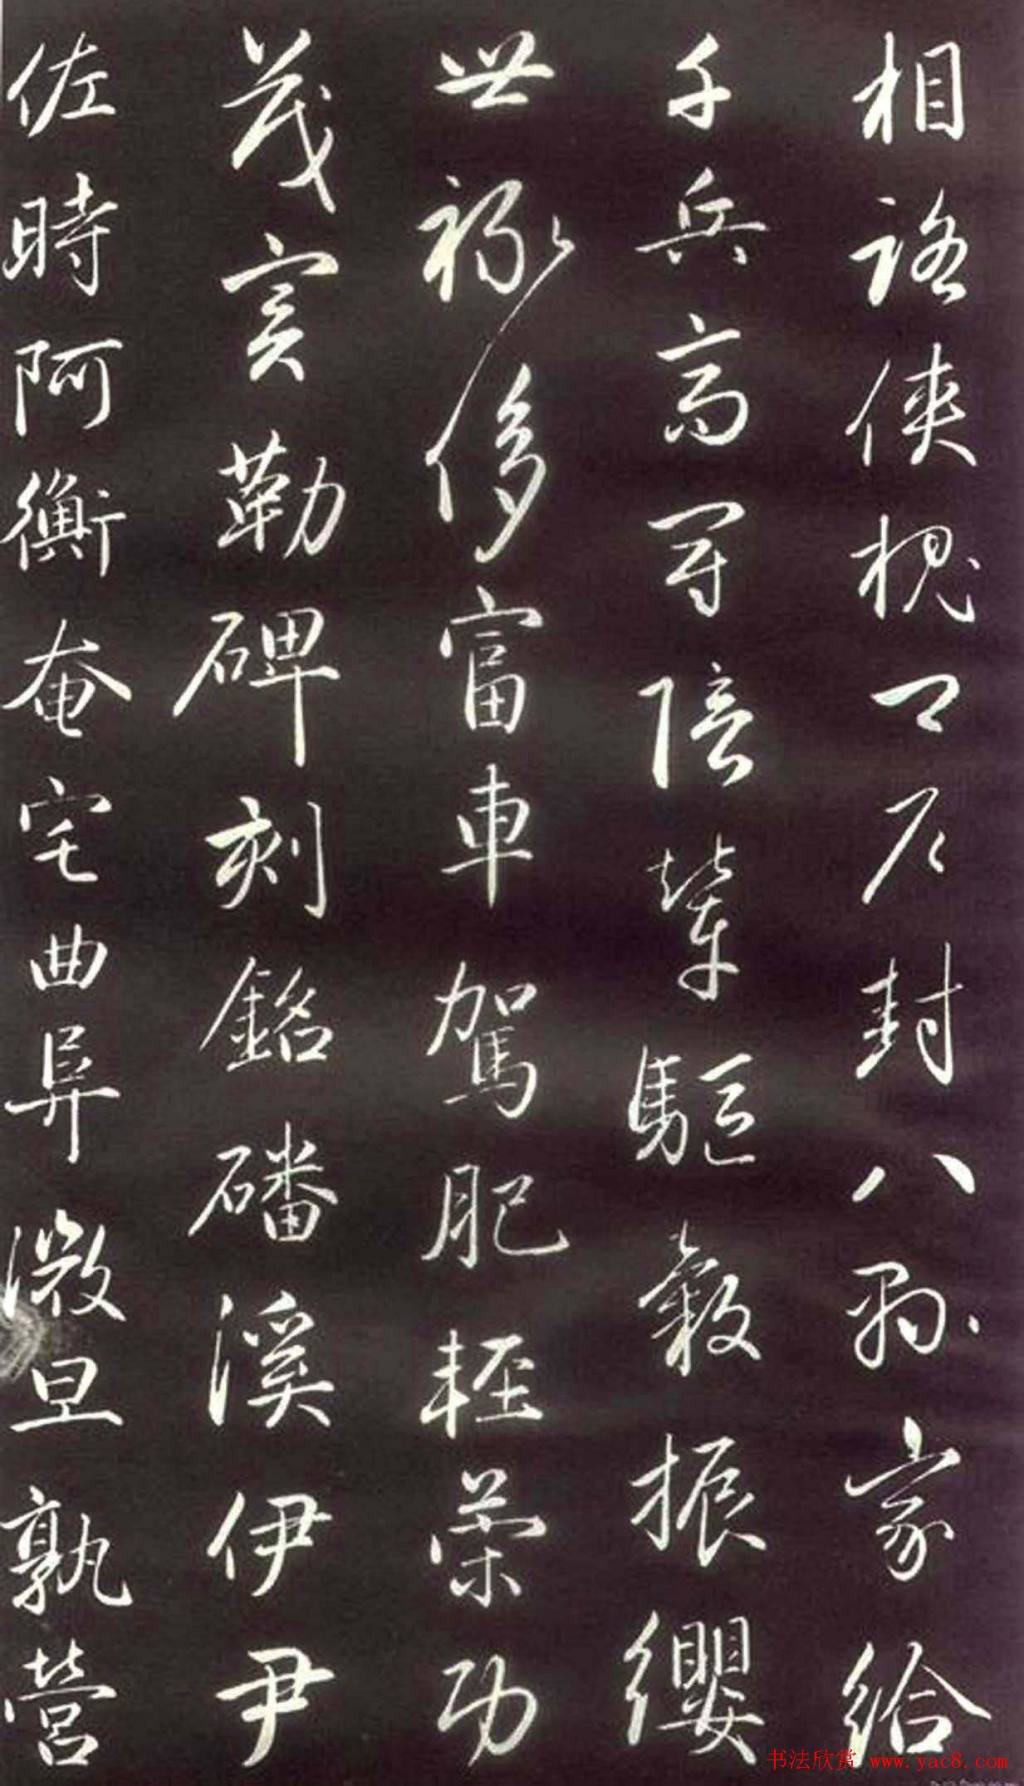 相路俠槐卿户封八縣家給
千兵高冠陪輦驅轂振纓
世祿侈富車駕肥輕策功
茂實勒碑刻銘磻溪伊尹
佐時阿衡奄宅曲阜微旦孰營
书法欣赏 www.yac8.com